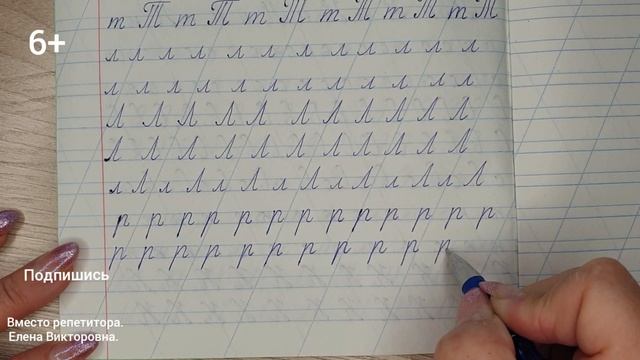 6+
т Т т Т т Т т Т т Т т Т
л л л л л л л л л л л л л
л л л л л л л л л л л л
Л Л Л Л Л Л Л Л Л Л Л
Л Л Л Л Л Л Л Л Л Л Л
л Л л Л л Л л Л л Л л Л л Л
р р р р р р р р р р р р р
р р р р р р р р р р р
Подпишись
Вместо репетитора.
Елена Викторовна.